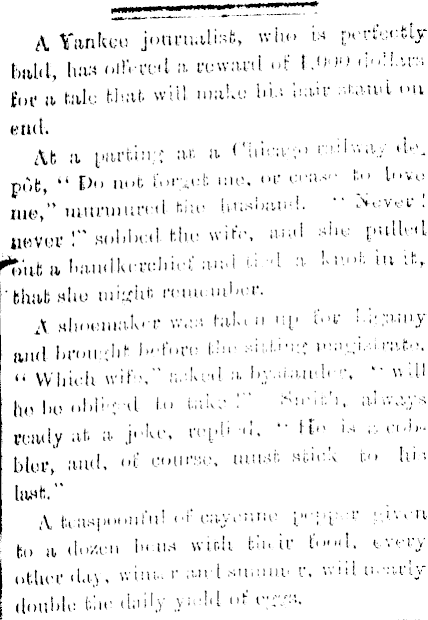 A Yankee journalist, who is perfectly
bald, has offered a reward of 1,000 dollars
for a tale that will make his hair stand on
end.
At a parting at a Chicago railway de-
pôt, “ Do not forget me, or cease to love
me,” murmured the husband. “ Never !
never !” sobbed the wife, and she pulled
out a handkerchief and tied a knot in it,
that she might remember.
A shoemaker was taken up for bigamy
and brought before the sitting magistrate.
“ Which wife,” asked a bystander, “ will
he be obliged to take ?” Smith, always
ready at a joke, replied, “ He is a cob-
bler, and, of course, must stick to his
last.”
A teaspoonful of cayenne pepper given
to a dozen hens with their food, every
other day, winter and summer, will nearly
double the daily yield of eggs.